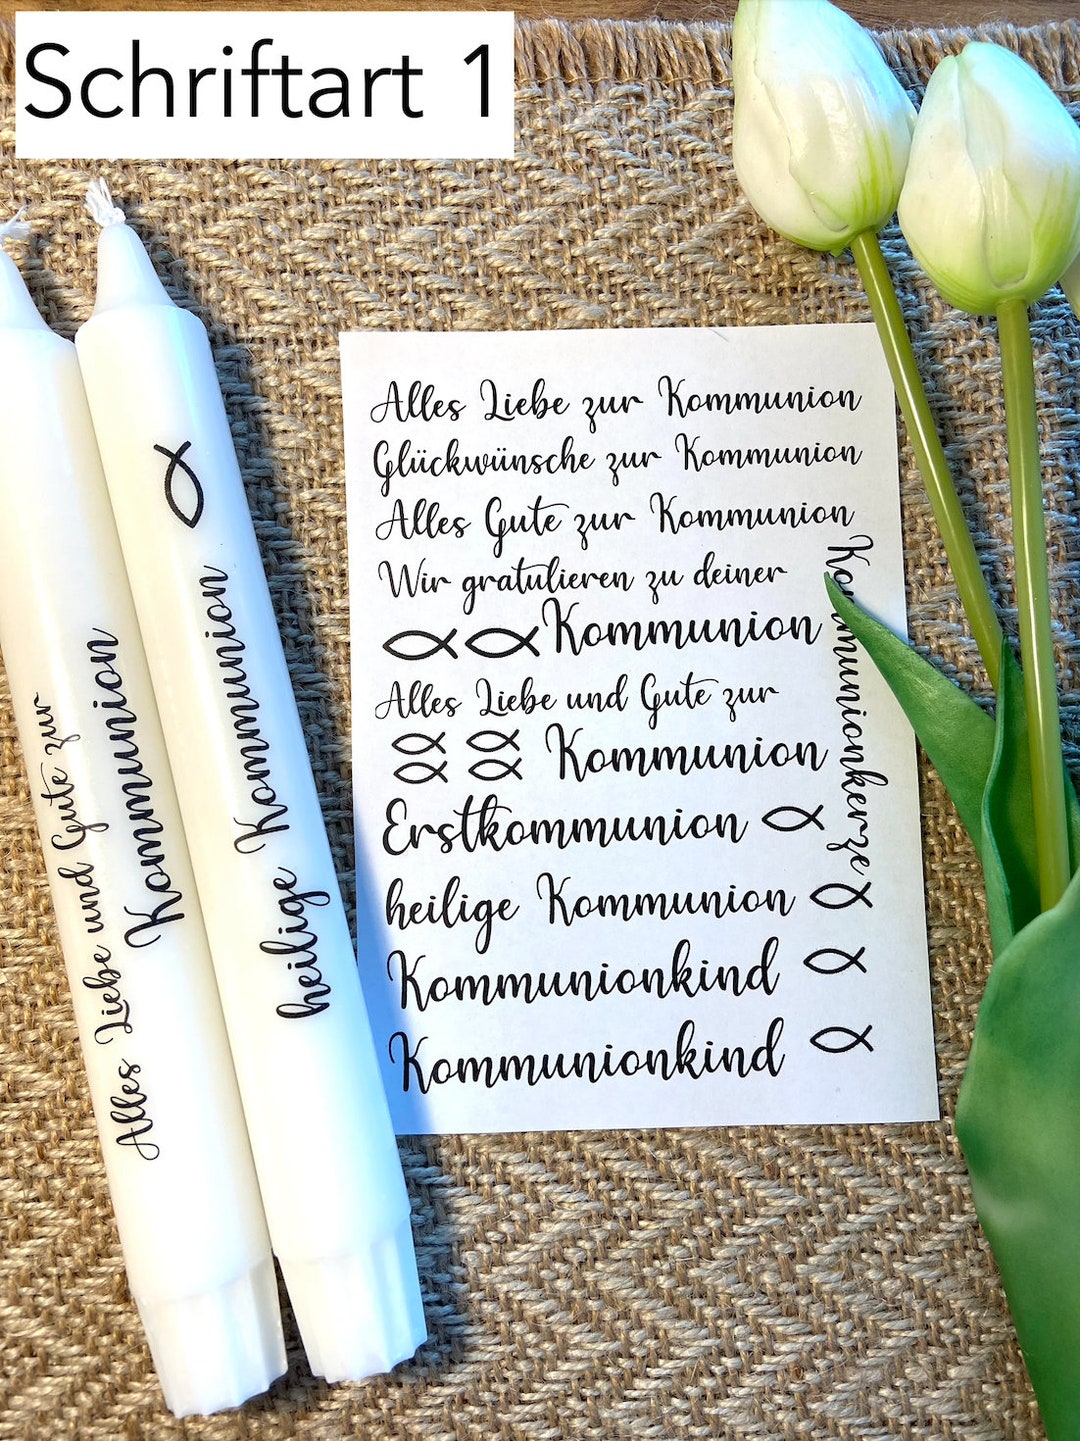 Schriftart 1
Alles Liebe und Gute zur
Kommunion
heilige Kommunion
Alles Liebe zur Kommunion
Glückwünsche zur Kommunion
Alles Gute zur Kommunion
Wir gratulieren zu deiner
Kommunion
Alles Liebe und Gute zur
Kommunion
Erstkommunion
heilige Kommunion
Kommunionkind
Kommunionkind
Kommunionkerze